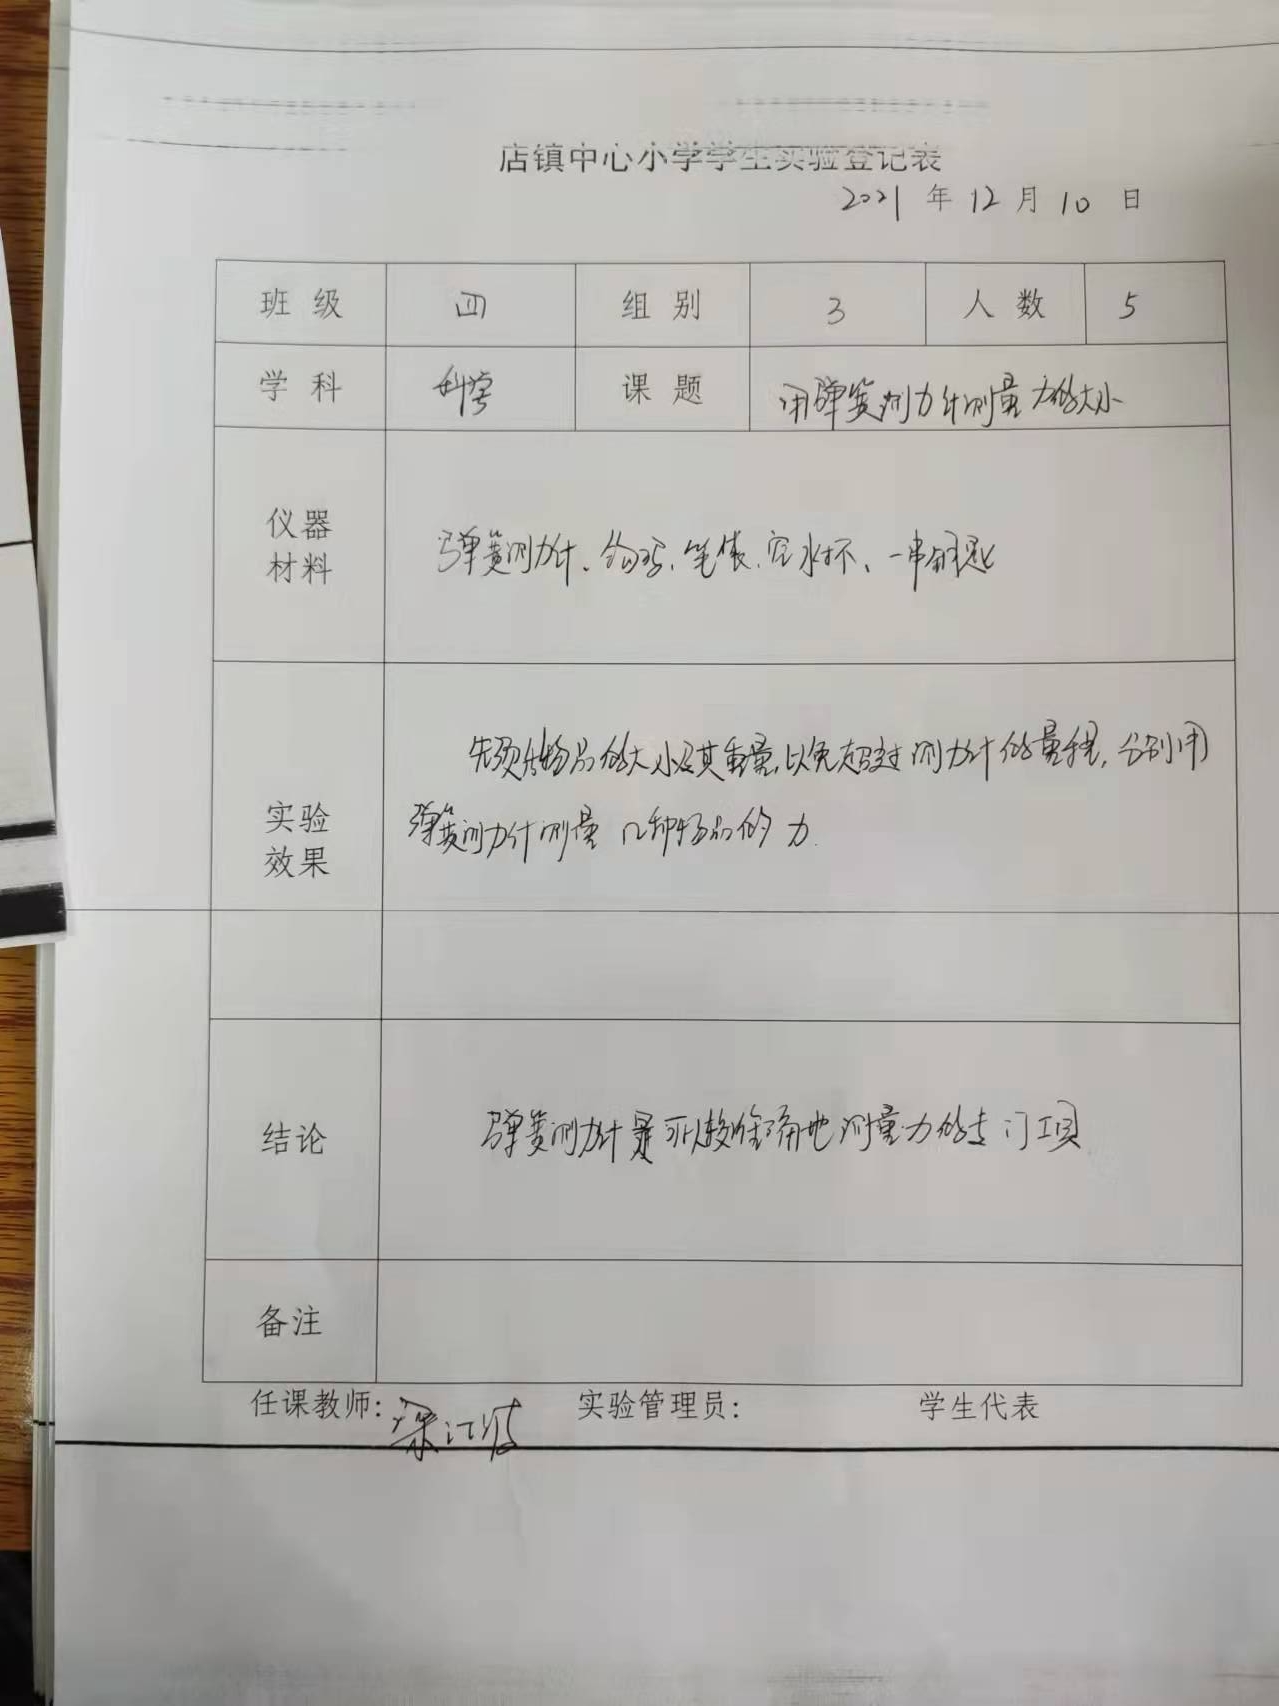 店镇中心小学学生实验登记表
2021 年 12 月 10 日
班 级 四 组 别 3 人 数 5
学 科 科学 课 题 用弹簧测力计测量力的大小
仪器
材料
弹簧测力计、钩码、笔袋、空水杯、一串钥匙
先预估物品的大小及其重量,以免超过测力计的量程,分别用
实验
效果
弹簧测力计测量几种物品的力.
结论
弹簧测力计是可以较准确地测量力的专门工具
备注
任课教师: 实验管理员: 学生代表